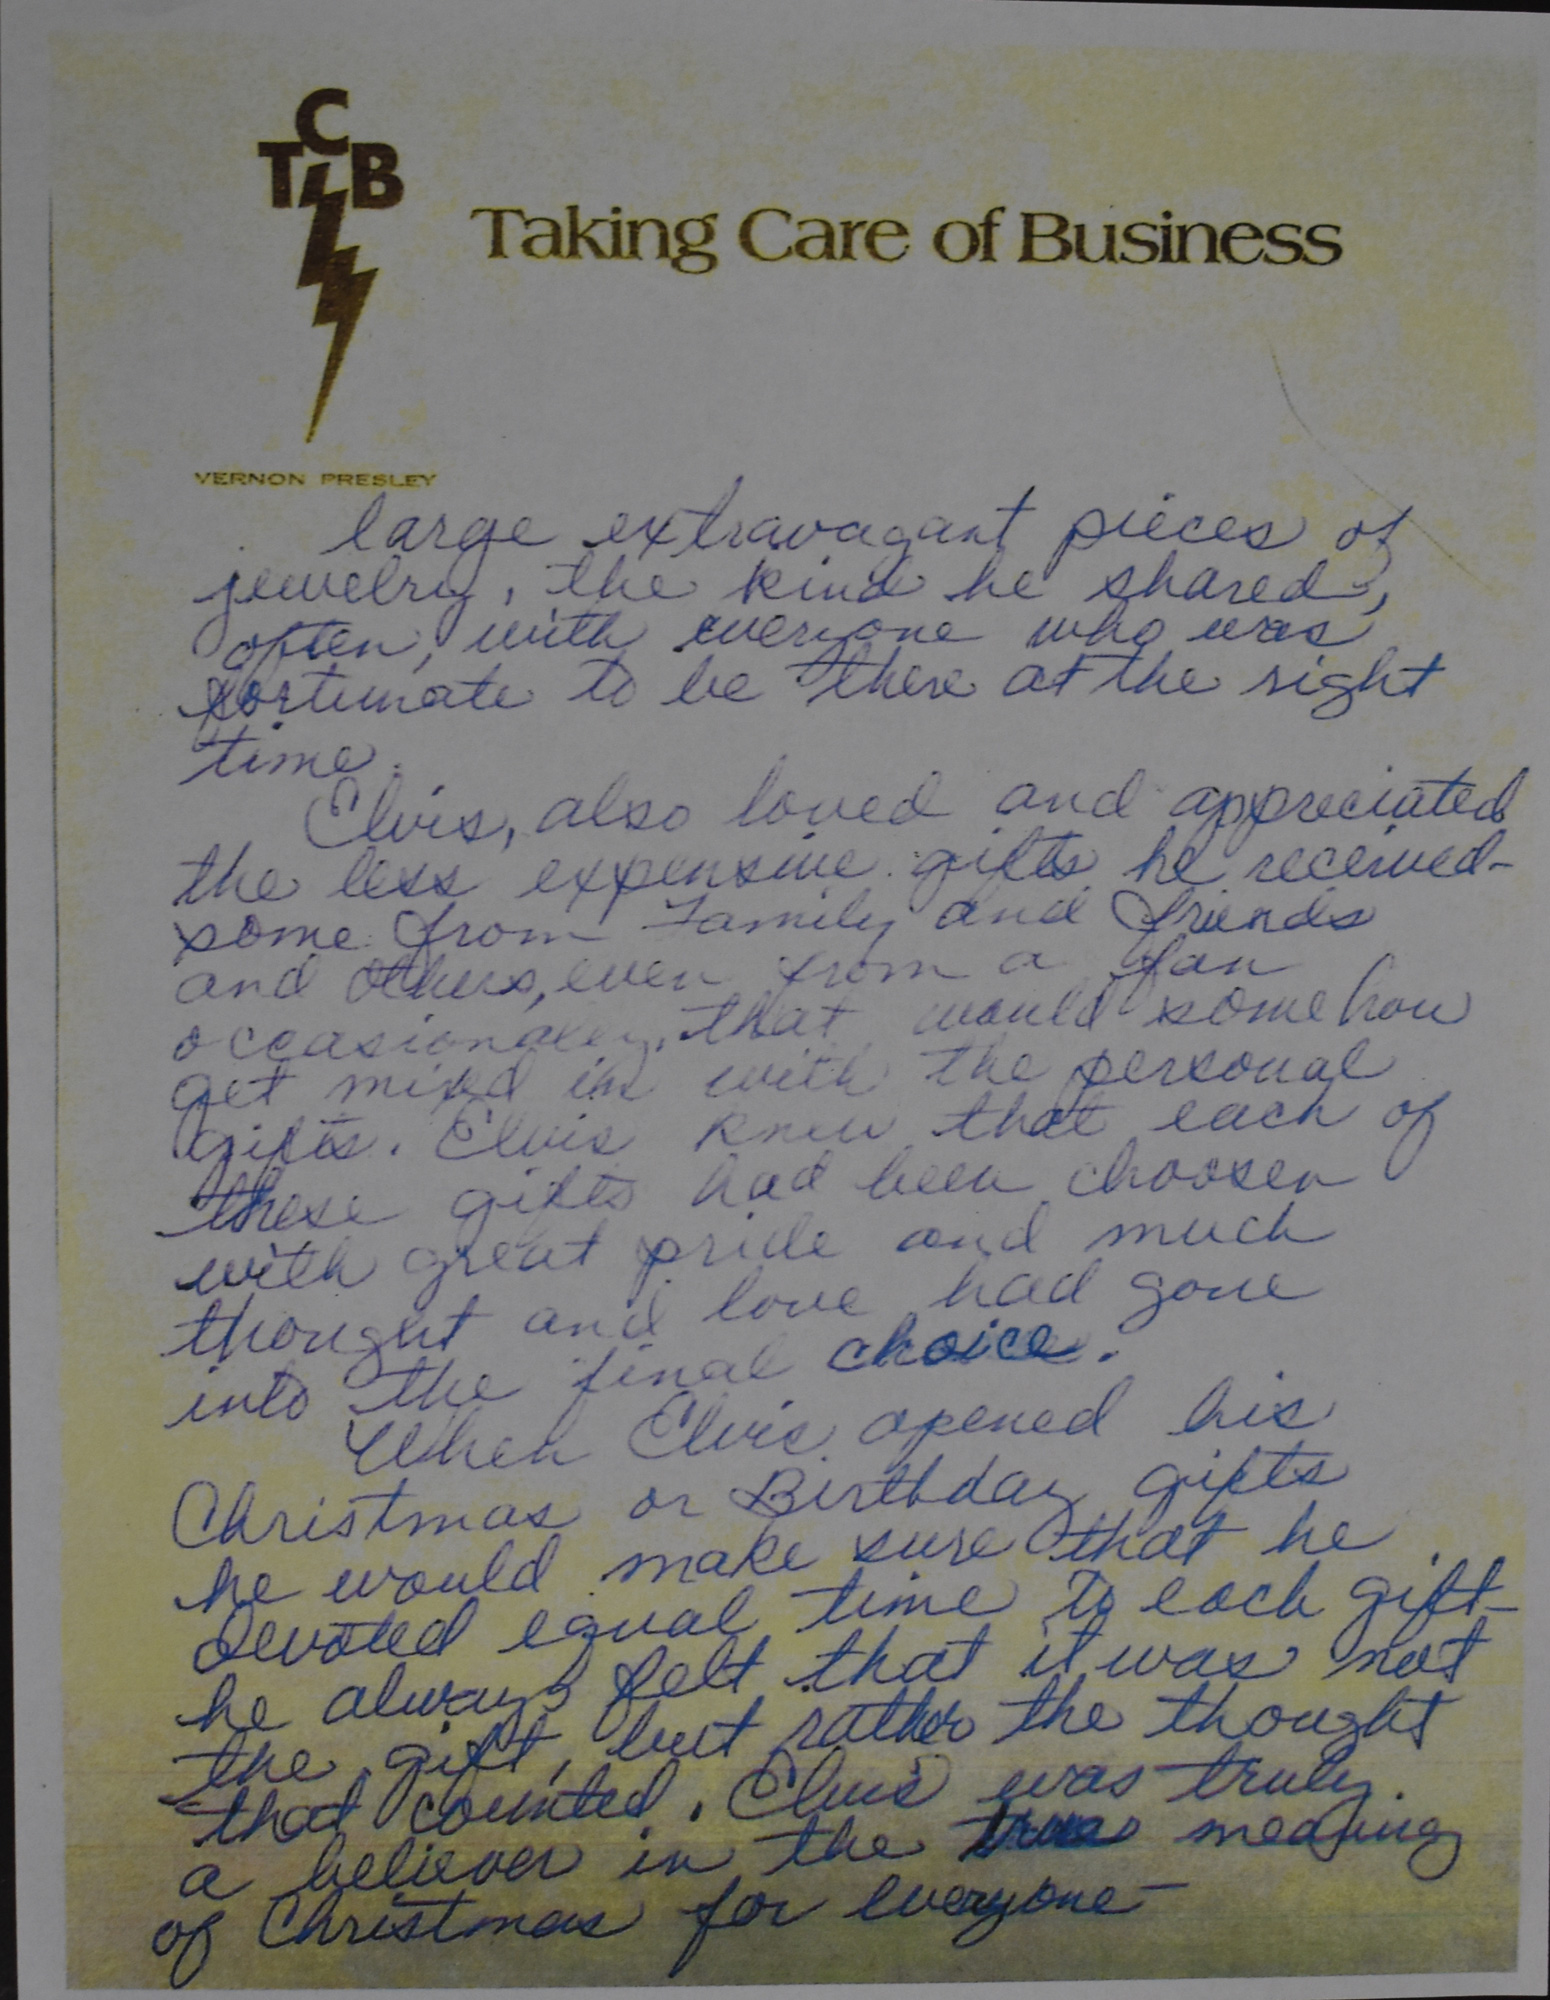 C
TCB
Taking Care of Business
VERNON PRESLEY
large extravagant pieces of
jewelry, the kind he shared,
often, with everyone who was
fortunate to be there at the right
time.
Elvis, also loved and appreciated
the less expensive gifts he received-
some from Family and friends
and others, even from a fan
occasionaly, that would somehow
get mixed in with the personal
gifts. Elvis knew that each of
these gifts had been choosen
with great pride and much
thought and love had gone
into the final choice.
When Elvis opened his
Christmas or Birthday gifts
he would make sure that he
devoted equal time to each gift-
he always felt that it was not
the gift, but rather the thought
that counted. Elvis was truly
a believer in the true meaning
of Christmas for everyone-